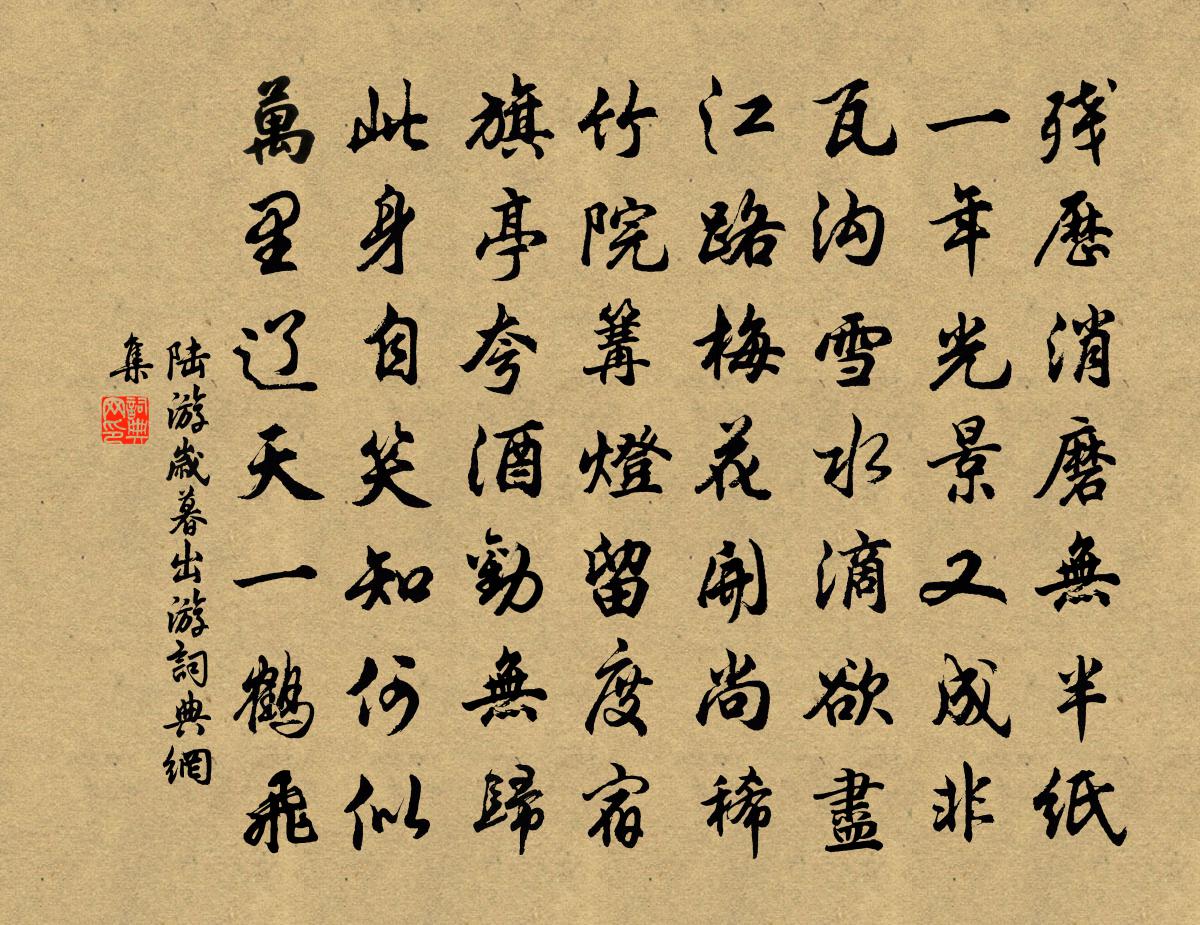 残歷消磨無半紙
一年光景又成非
瓦沟雪水滴欲盡
江路梅花開尚稀
竹院篝燈留度宿
旗亭夸酒勸無歸
此身自笑知何似
萬里辽天一鶴飛
陆游歲暮出游詞典網
集
詞典网印